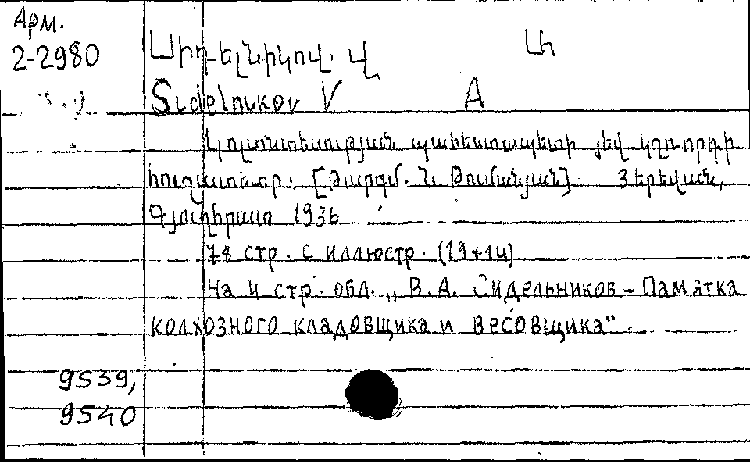 Арм.
2-2980
Սիդելնիկով. Վ Ա
Sidelnikov V A
պահեստապետի յեվ կշռորդի
[Թարգմ. Ն. Թումանյան] Յերեվան,
Գյուղհրատ 1936
78 стр. с иллюстр. (19+14)
На 4 стр. обл. „В.А. Сидельников – Памятка
колхозного кладовщика и весовщика"
9539,
9540